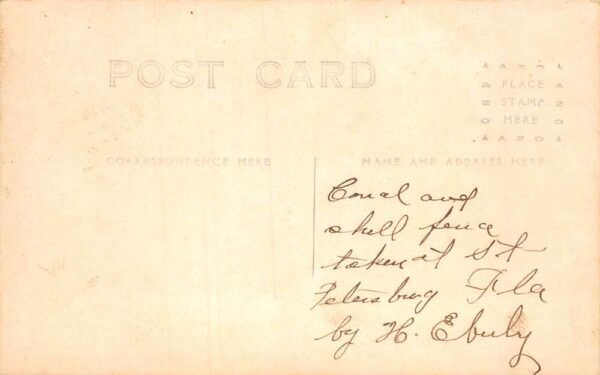 POST CARD
PLACE
STAMP
HERE
CORRESPONDENCE HERE
NAME AND ADDRESS HERE
Coral and
shell fence
taken at St
Petersburg Fla
by H. Eberly